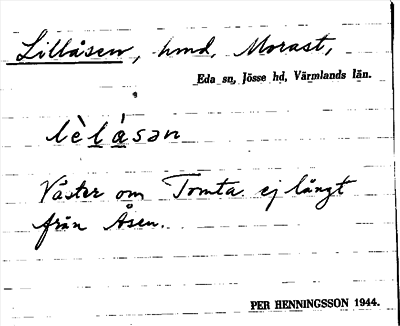 Lillåsen, hmd, Morast,
Eda sn, Jösse hd, Värmlands län.
lèlåsən
Väster om Tomta ej långt
från Åsen.
PER HENNINGSSON 1944.